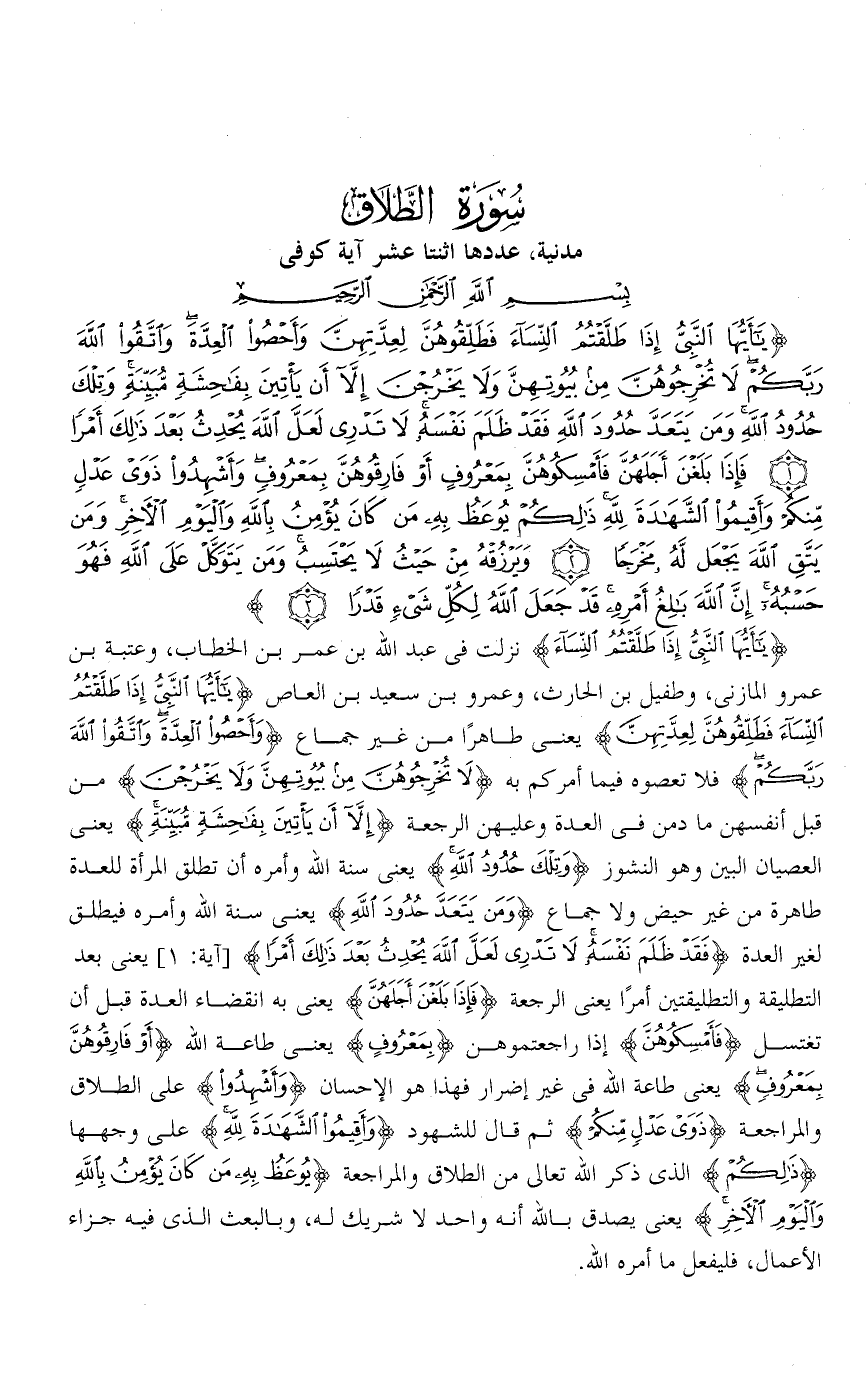 سُورَةُ الطَّلَاقِ
مدنية، عددها اثنتا عشر آية كوفى
بِسْمِ ٱللَّهِ ٱلرَّحْمَٰنِ ٱلرَّحِيمِ
﴿يَٰٓأَيُّهَا ٱلنَّبِىُّ إِذَا طَلَّقْتُمُ ٱلنِّسَآءَ فَطَلِّقُوهُنَّ لِعِدَّتِهِنَّ وَأَحْصُوا۟ ٱلْعِدَّةَ ۖ وَٱتَّقُوا۟ ٱللَّهَ
رَبَّكُمْ ۖ لَا تُخْرِجُوهُنَّ مِنۢ بُيُوتِهِنَّ وَلَا يَخْرُجْنَ إِلَّآ أَن يَأْتِينَ بِفَٰحِشَةٍ مُّبَيِّنَةٍ ۚ وَتِلْكَ
حُدُودُ ٱللَّهِ ۚ وَمَن يَتَعَدَّ حُدُودَ ٱللَّهِ فَقَدْ ظَلَمَ نَفْسَهُۥ ۚ لَا تَدْرِى لَعَلَّ ٱللَّهَ يُحْدِثُ بَعْدَ ذَٰلِكَ أَمْرًا
۝١ فَإِذَا بَلَغْنَ أَجَلَهُنَّ فَأَمْسِكُوهُنَّ بِمَعْرُوفٍ أَوْ فَارِقُوهُنَّ بِمَعْرُوفٍ ۖ وَأَشْهِدُوا۟ ذَوَىْ عَدْلٍ
مِّنكُمْ وَأَقِيمُوا۟ ٱلشَّهَٰدَةَ لِلَّهِ ۚ ذَٰلِكُمْ يُوعَظُ بِهِۦ مَن كَانَ يُؤْمِنُ بِٱللَّهِ وَٱلْيَوْمِ ٱلْءَاخِرِ ۚ وَمَن
يَتَّقِ ٱللَّهَ يَجْعَل لَّهُۥ مَخْرَجًا ۝٢ وَيَرْزُقْهُ مِنْ حَيْثُ لَا يَحْتَسِبُ ۚ وَمَن يَتَوَكَّلْ عَلَى ٱللَّهِ فَهُوَ
حَسْبُهُۥٓ ۚ إِنَّ ٱللَّهَ بَٰلِغُ أَمْرِهِۦ ۚ قَدْ جَعَلَ ٱللَّهُ لِكُلِّ شَىْءٍ قَدْرًا ۝٣ ﴾
﴿يَٰٓأَيُّهَا ٱلنَّبِىُّ إِذَا طَلَّقْتُمُ ٱلنِّسَآءَ﴾ نزلت فى عبد الله بن عمر بن الخطاب، وعتبة بن
عمرو المازنى، وطفيل بن الحارث، وعمرو بن سعيد بن العاص ﴿يَٰٓأَيُّهَا ٱلنَّبِىُّ إِذَا طَلَّقْتُمُ
ٱلنِّسَآءَ فَطَلِّقُوهُنَّ لِعِدَّتِهِنَّ﴾ يعنى طاهرًا من غير جماع ﴿وَأَحْصُوا۟ ٱلْعِدَّةَ ۖ وَٱتَّقُوا۟ ٱللَّهَ
رَبَّكُمْ ۖ﴾ فلا تعصوه فيما أمركم به ﴿لَا تُخْرِجُوهُنَّ مِنۢ بُيُوتِهِنَّ وَلَا يَخْرُجْنَ﴾ من
قبل أنفسهن ما دمن فى العدة وعليهن الرجعة ﴿إِلَّآ أَن يَأْتِينَ بِفَٰحِشَةٍ مُّبَيِّنَةٍ ۚ﴾ يعنى
العصيان البين وهو النشوز ﴿وَتِلْكَ حُدُودُ ٱللَّهِ ۚ﴾ يعنى سنة الله وأمره أن تطلق المرأة للعدة
طاهرة من غير حيض ولا جماع ﴿وَمَن يَتَعَدَّ حُدُودَ ٱللَّهِ﴾ يعنى سنة الله وأمره فيطلق
لغير العدة ﴿فَقَدْ ظَلَمَ نَفْسَهُۥ ۚ لَا تَدْرِى لَعَلَّ ٱللَّهَ يُحْدِثُ بَعْدَ ذَٰلِكَ أَمْرًا﴾ [آية: ١] يعنى بعد
التطليقة والتطليقتين أمرًا يعنى الرجعة ﴿فَإِذَا بَلَغْنَ أَجَلَهُنَّ﴾ يعنى به انقضاء العدة قبل أن
تغتسل ﴿فَأَمْسِكُوهُنَّ﴾ إذا راجعتموهن ﴿بِمَعْرُوفٍ﴾ يعنى طاعة الله ﴿أَوْ فَارِقُوهُنَّ
بِمَعْرُوفٍ ۖ﴾ يعنى طاعة الله فى غير إضرار فهذا هو الإحسان ﴿وَأَشْهِدُوا۟﴾ على الطلاق
والمراجعة ﴿ذَوَىْ عَدْلٍ مِّنكُمْ﴾ ثم قال للشهود ﴿وَأَقِيمُوا۟ ٱلشَّهَٰدَةَ لِلَّهِ ۚ﴾ على وجهها
﴿ذَٰلِكُمْ﴾ الذى ذكر الله تعالى من الطلاق والمراجعة ﴿يُوعَظُ بِهِۦ مَن كَانَ يُؤْمِنُ بِٱللَّهِ
وَٱلْيَوْمِ ٱلْءَاخِرِ ۚ﴾ يعنى يصدق بالله أنه واحد لا شريك له، وبالبعث الذى فيه جزاء
الأعمال، فليفعل ما أمره الله.